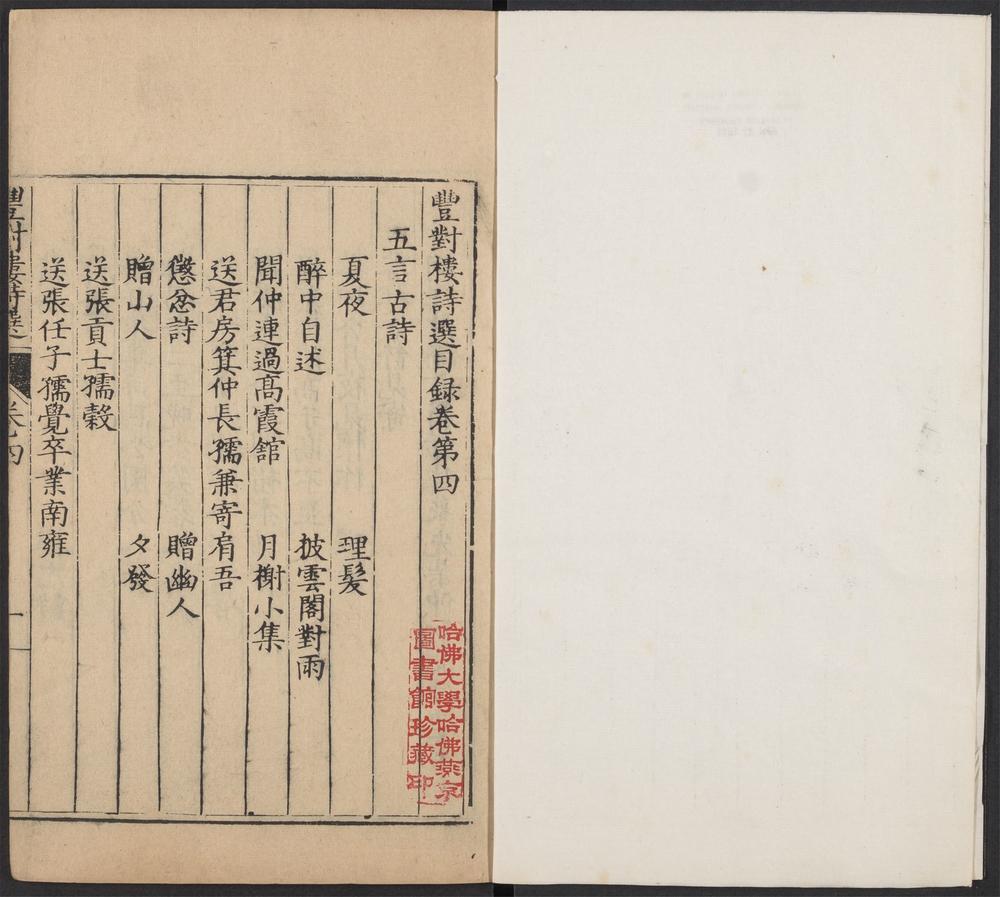 豐對樓詩選目録卷第四
五言古詩
夏夜 理髮
醉中自述 披雲閣對雨
聞仲連過髙霞舘 月榭小集
送君房箕仲長孺兼寄肩吾
懲忿詩 贈幽人
贈山人 夕發
送張貢士孺穀
送張任子孺覺卒業南雍
豐對樓詩選
卷四
一
哈佛大學哈佛燕京
圖書館珍藏印